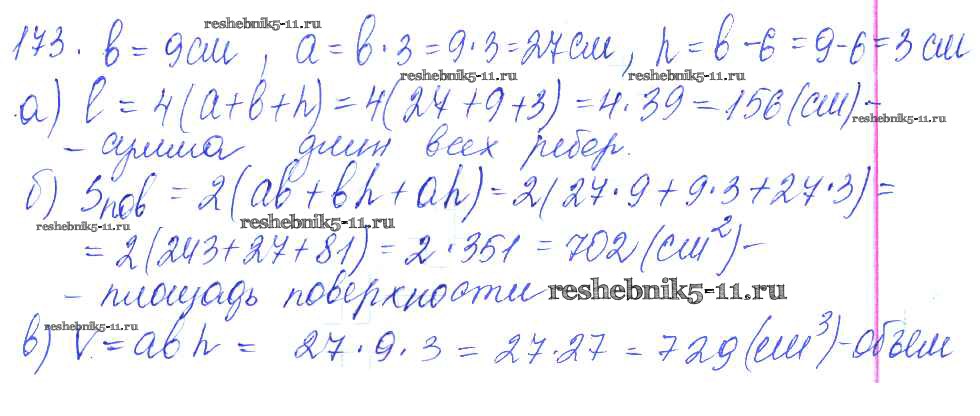 reshebnik5-11.ru
173. b = 9см, a = b·3 = 9·3 = 27см, h = b-6 = 9-6 = 3 см
reshebnik5-11.ru reshebnik5-11.ru
а) l = 4(a+b+h) = 4(27+9+3) = 4·39 = 156(см) -
reshebnik5-11.ru
- сумма длин всех ребер.
б) Sпов = 2(ab+bh+ah) = 2(27·9+9·3+27·3) =
reshebnik5-11.ru reshebnik5-11.ru
= 2(243+27+81) = 2·351 = 702(см²) -
- площадь поверхности reshebnik5-11.ru
reshebnik5-11.ru
в) V = abh = 27·9·3 = 27·27 = 729(см³) - объем